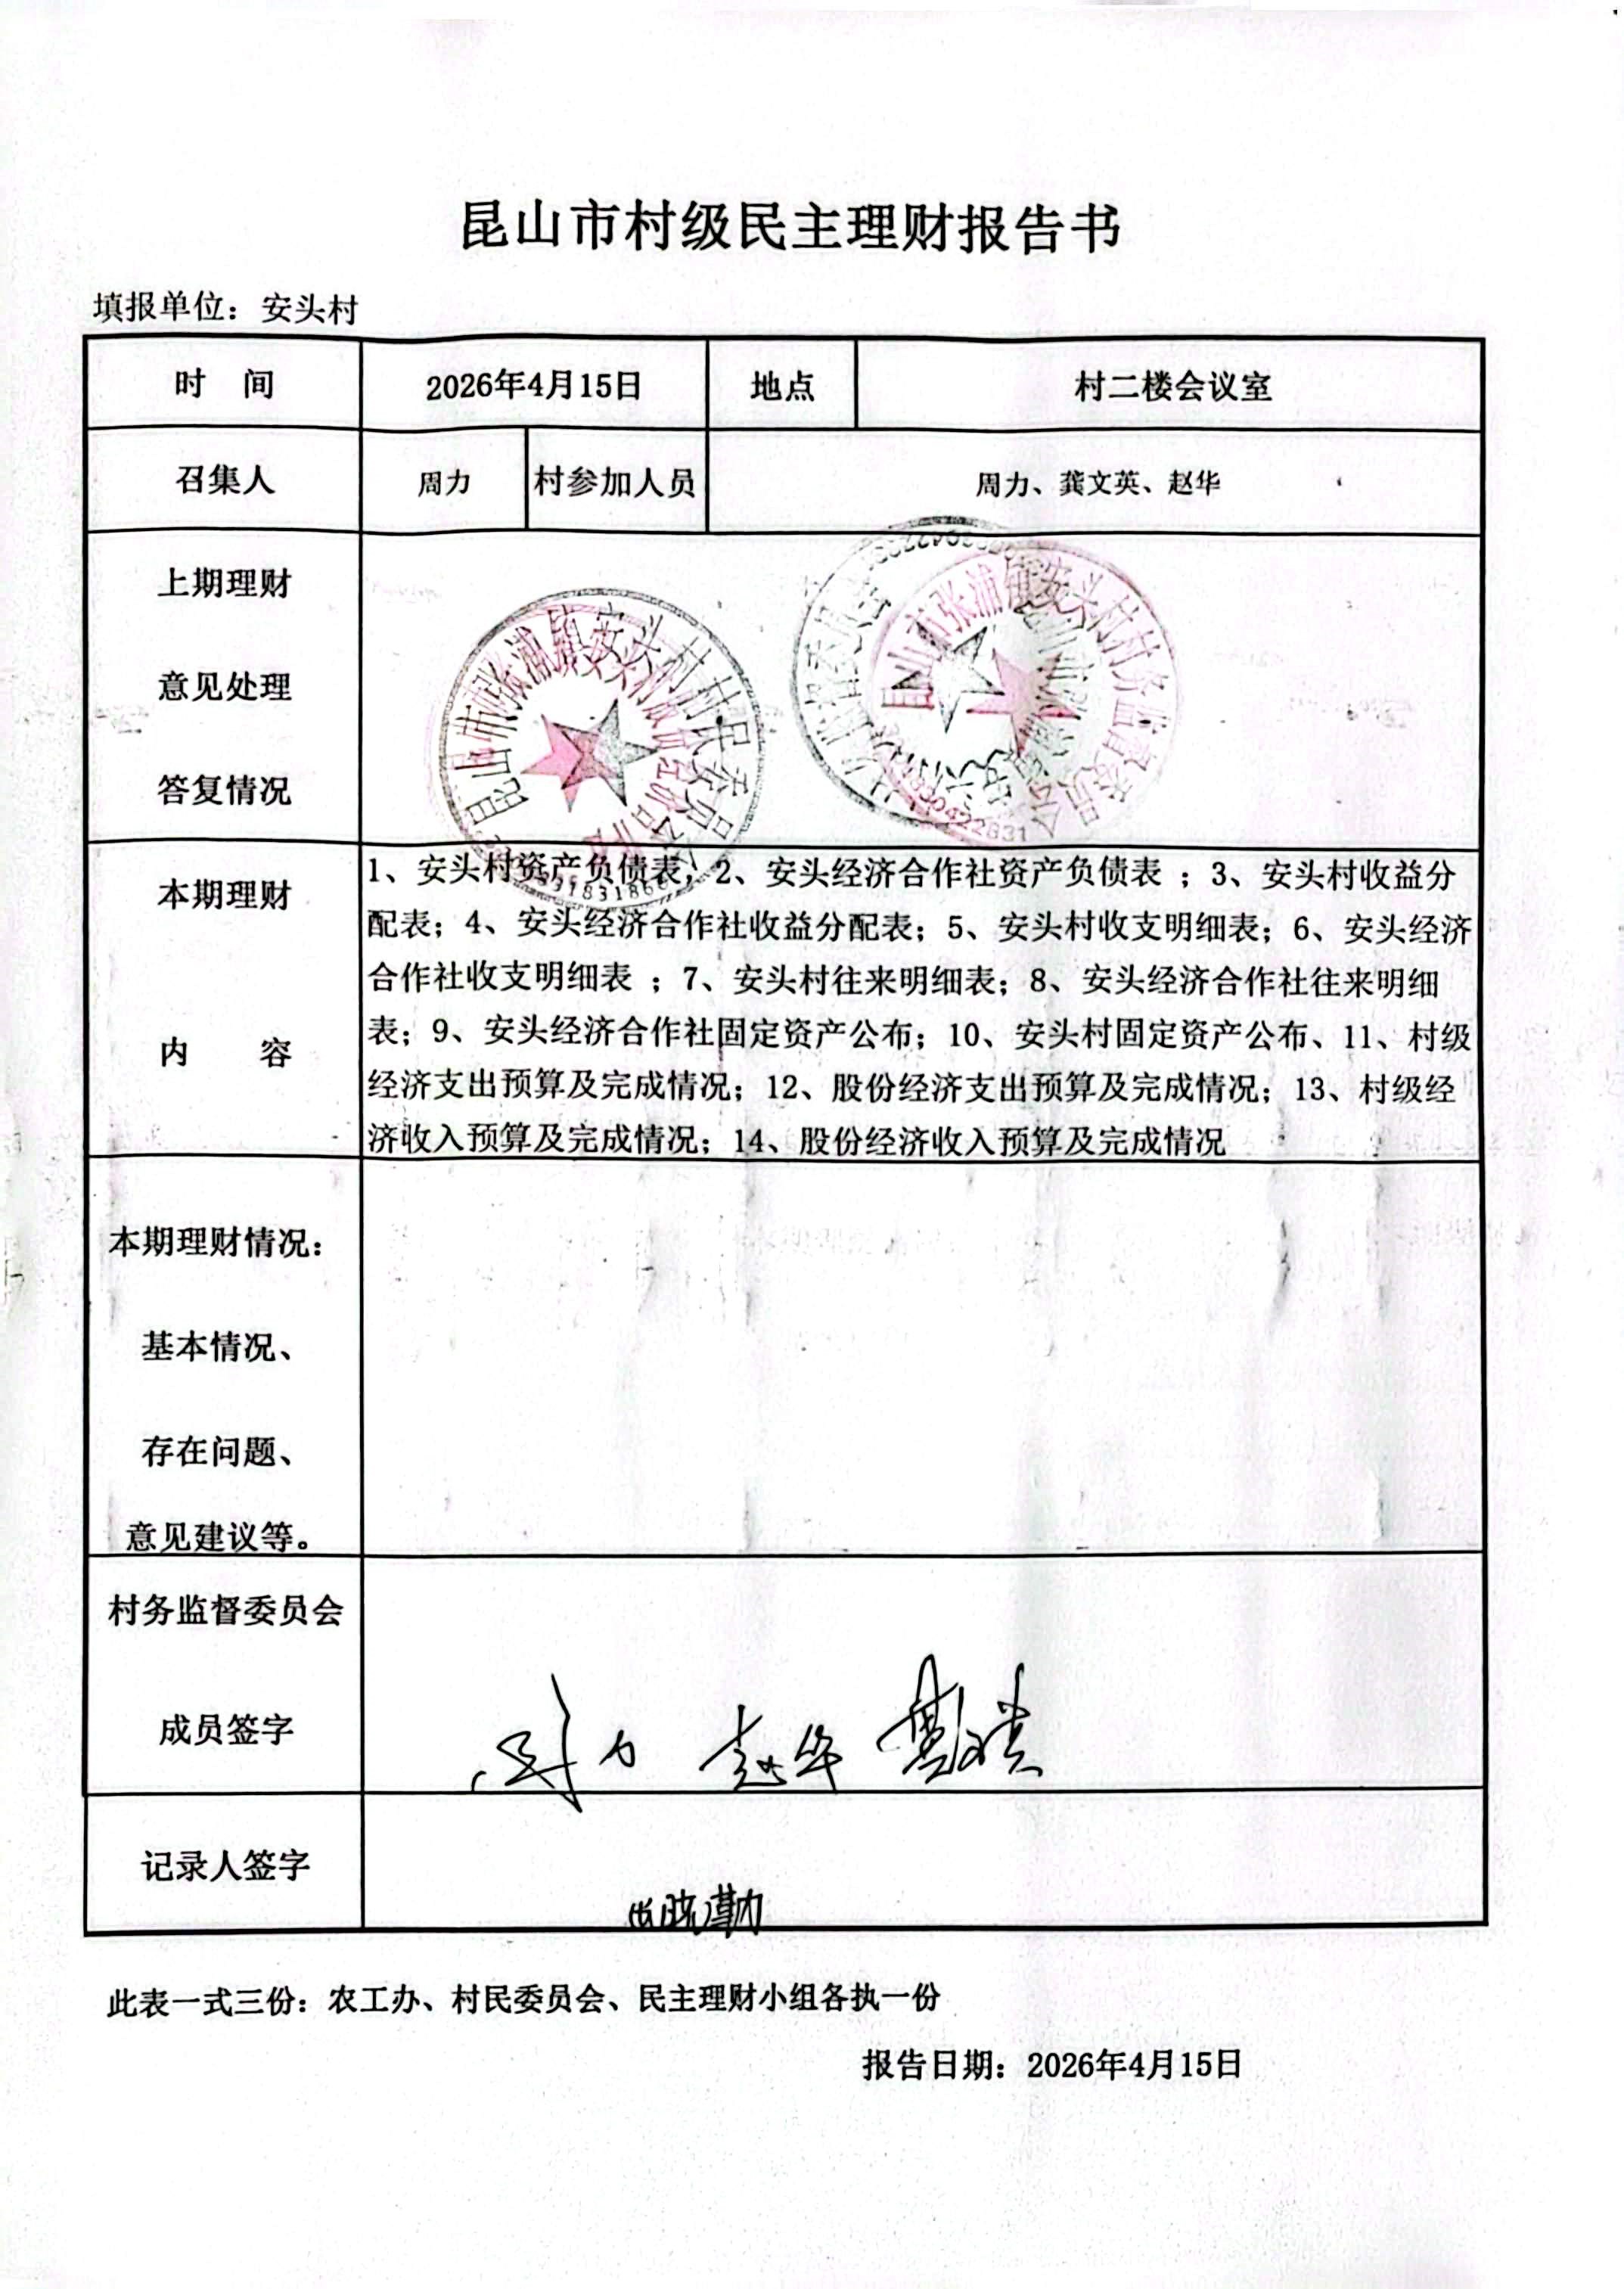 昆山市村级民主理财报告书
填报单位：安头村
时 间 2026年4月15日 地点 村二楼会议室
召集人 周力 村参加人员 周力、龚文英、赵华
上期理财
意见处理
答复情况
昆山市张浦镇安头村村民委员会
昆山市张浦镇安头村村务监督委员会
本期理财
内 容
1、安头村资产负债表；2、安头经济合作社资产负债表 ；3、安头村收益分
配表；4、安头经济合作社收益分配表；5、安头村收支明细表；6、安头经济
合作社收支明细表 ；7、安头村往来明细表；8、安头经济合作社往来明细
表；9、安头经济合作社固定资产公布；10、安头村固定资产公布、11、村级
经济支出预算及完成情况；12、股份经济支出预算及完成情况；13、村级经
济收入预算及完成情况；14、股份经济收入预算及完成情况
本期理财情况：
基本情况、
存在问题、
意见建议等。
村务监督委员会
成员签字
周力 赵华 龚文英
记录人签字
晓勤
此表一式三份：农工办、村民委员会、民主理财小组各执一份
报告日期：2026年4月15日